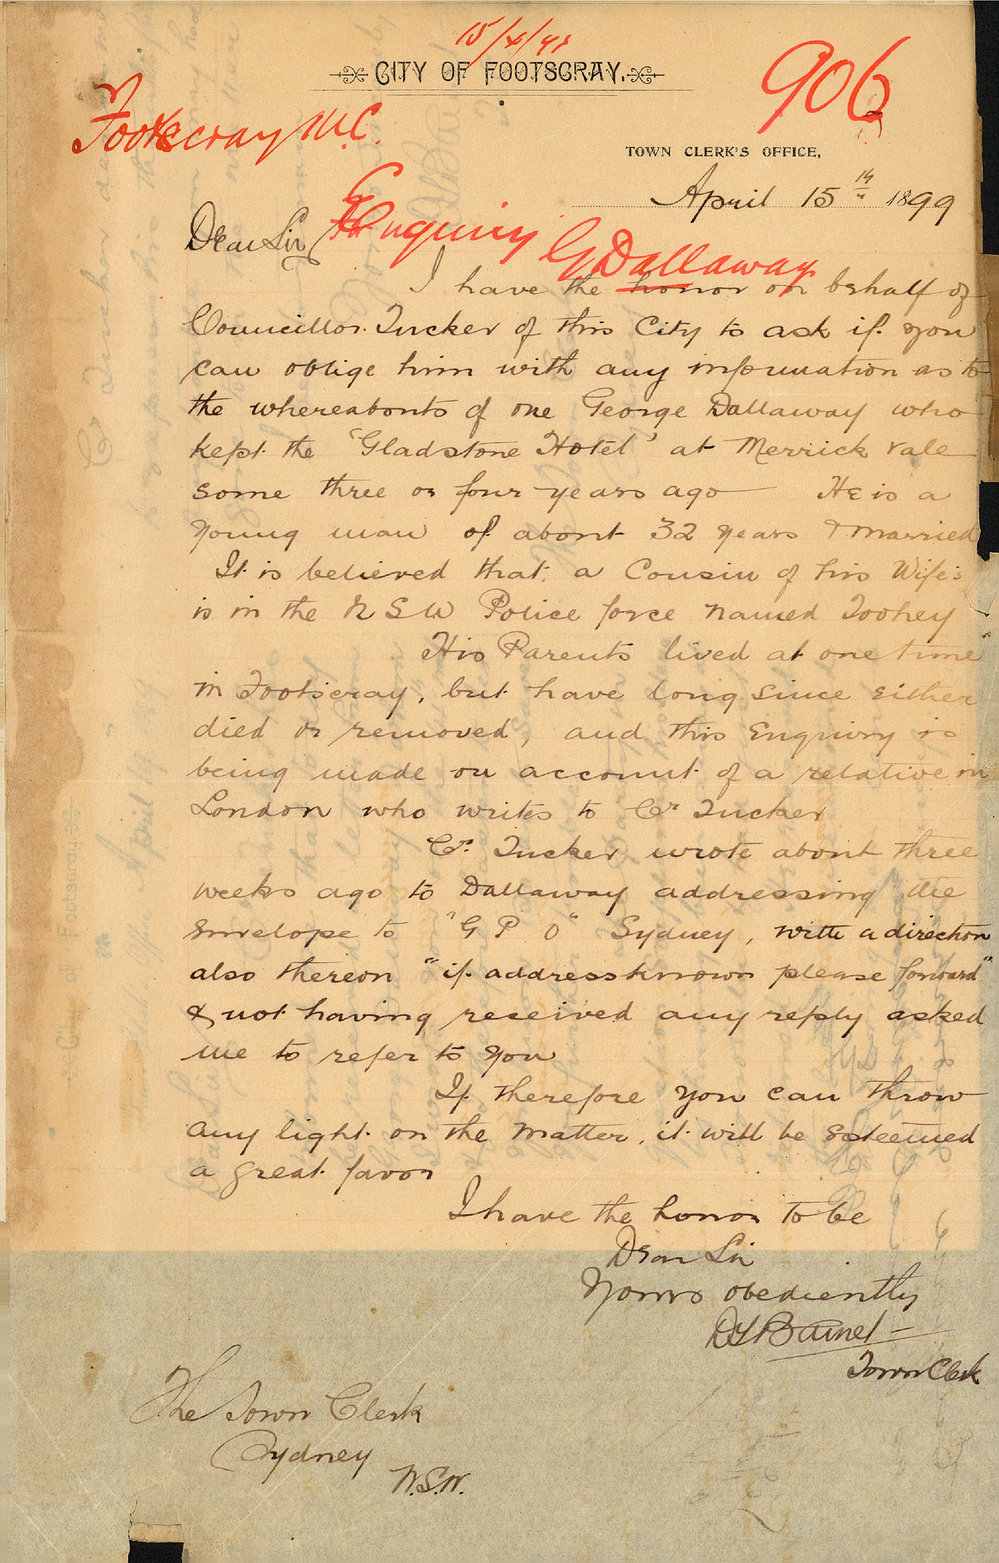 15/4/99
CITY OF FOOTSCRAY.
906
Footscray M.C.
TOWN CLERK'S OFFICE,
April 15th 1899
Enquiry G Dallaway
Dear Sir
I have the honor on behalf of
Councillor Tucker of this City to ask if you
can oblige him with any information as to
the whereabouts of one George Dallaway who
kept the 'Gladstone Hotel' at Merrick vale
some three or four years ago He is a
young man of about 32 years & married
It is believed that a Cousin of his Wife's
is in the N S W Police force named Toohey
His Parents lived at one time
in Footscray, but have long since either
died or removed, and this Enquiry is
being made on account of a relative in
London who writes to Cr Tucker
Cr. Tucker wrote about three
weeks ago to Dallaway addressing the
Envelope to "G P O" Sydney, with a direction
also thereon "if address known please forward"
& not having received any reply asked
me to refer to you
If therefore you can throw
any light on the matter, it will be esteemed
a great favor
I have the honor to be
Dear Sir
Yours obediently
Town Clerk
The Town Clerk
Sydney
N.S.W.